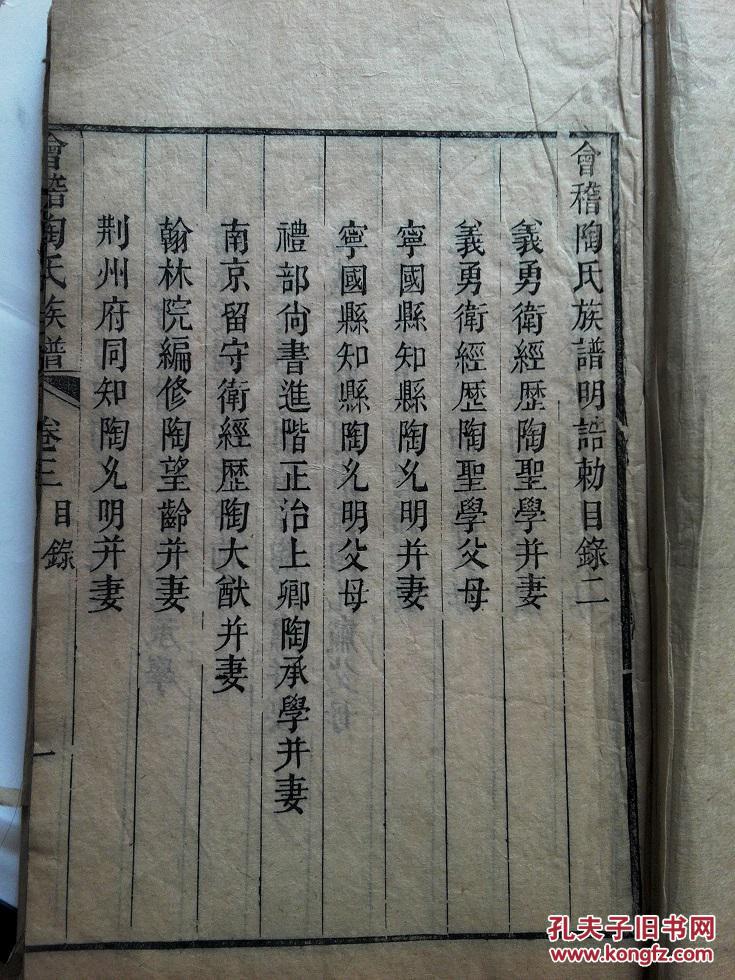 會稽陶氏族譜明誥勅目錄二
義勇衛經歴陶聖學并妻
義勇衛經歴陶聖學父母
寧國縣知縣陶允明并妻
寧國縣知縣陶允明父母
禮部尙書進階正治上卿陶承學并妻
南京留守衛經歴陶大猷并妻
翰林院編修陶望齡并妻
荆州府同知陶允明并妻
會稽陶氏族譜 卷三 目錄 一
孔夫子旧书网
www.kongfz.com